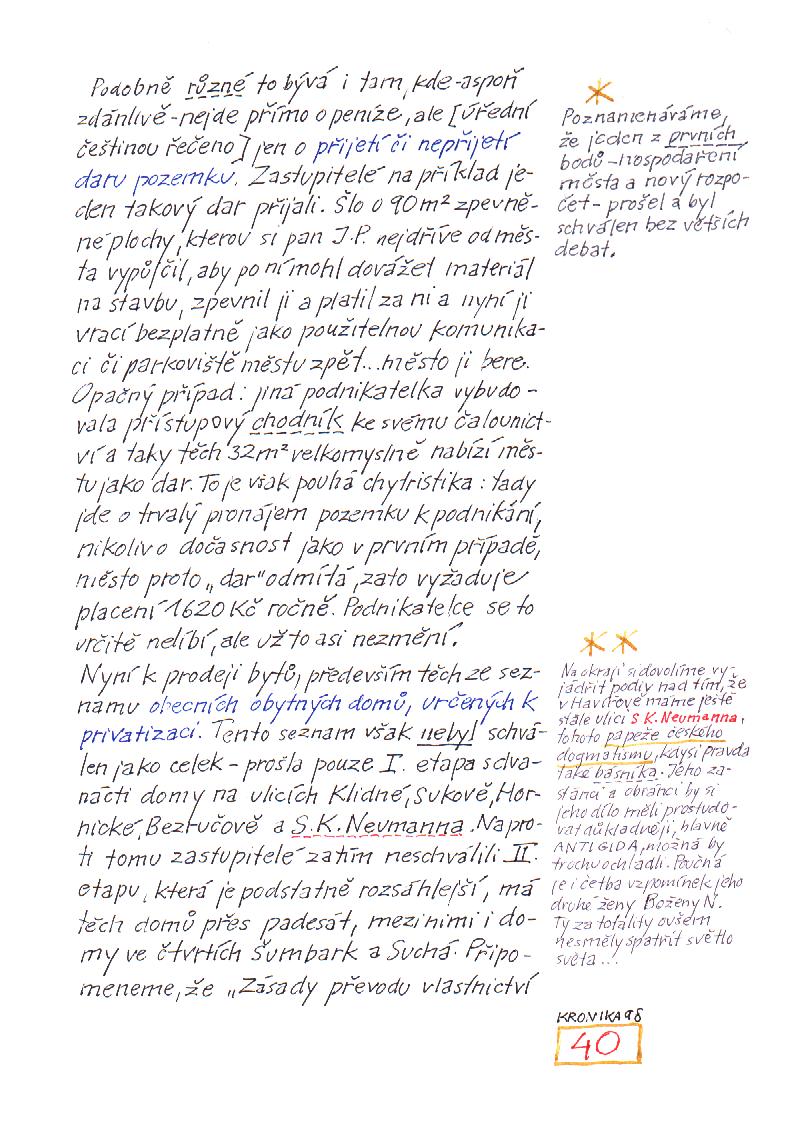 Podobně různé to bývá i tam, kde - aspoň
zdánlivě - nejde přímo o peníze, ale [úřední
češtinou řečeno] jen o přijetí či nepřijetí
daru pozemku. Zastupitelé na příklad je-
den takový dar přijali. Šlo o 90 m² zpevně-
né plochy, kterou si pan J.P. nejdříve od měs-
ta vypůjčil, aby po ní mohl dovážet materiál
na stavbu, zpevnil ji a platil za ni a nyní ji
vrací bezplatně jako použitelnou komunika-
ci či parkoviště městu zpět...město ji bere.
Opačný případ: jiná podnikatelka vybudo-
vala přístupový chodník ke svému čalounict-
ví a taky těch 32 m² velkomyslně nabízí měs-
tu jako dar. To je však pouhá chytristika: tady
jde o trvalý pronájem pozemku k podnikání,
nikoliv o dočasnost jako v prvním případě,
město proto „dar" odmítá, zato vyžaduje
placení 1620 Kč ročně. Podnikatelce se to
určitě nelíbí, ale už to asi nezmění.
Nyní k prodeji bytů, především těch ze sez-
namu obecních obytných domů, určených k
privatizaci. Tento seznam však nebyl schvá-
len jako celek - prošla pouze I. etapa s dva-
nácti domy na ulicích Klidné, Sukově, Hor-
nické, Bezručově a S.K. Neumanna. Napro-
ti tomu zastupitelé zatím neschválili II.
etapu, která je podstatně rozsáhlejší, má
těch domů přes padesát, mezi nimi i do-
my ve čtvrtích Šumbark a Suchá. Připo-
meneme, že „Zásady převodu vlastnictví
*
Poznamenáváme,
že jeden z prvních
bodů - hospodaření
města a nový rozpo-
čet - prošel a byl
schválen bez větších
debat.
* *
Na okraji si dovolíme vy-
jádřit podiv nad tím, že
v Havířově máme ještě
stále ulici S.K. Neumanna,
tohoto papeže českého
dogmatismu, kdysi pravda
také básníka. Jeho za-
stánci a obránci by si
jeho dílo měli prostudo-
vat důkladněji, hlavně
ANTI GIDA, možná by
trochu ochladli. Poučná
je i četba vzpomínek jeho
druhé ženy Boženy N.
Ty za totality ovšem
nesměly spatřit světlo
světa...
KRONIKA 98
40